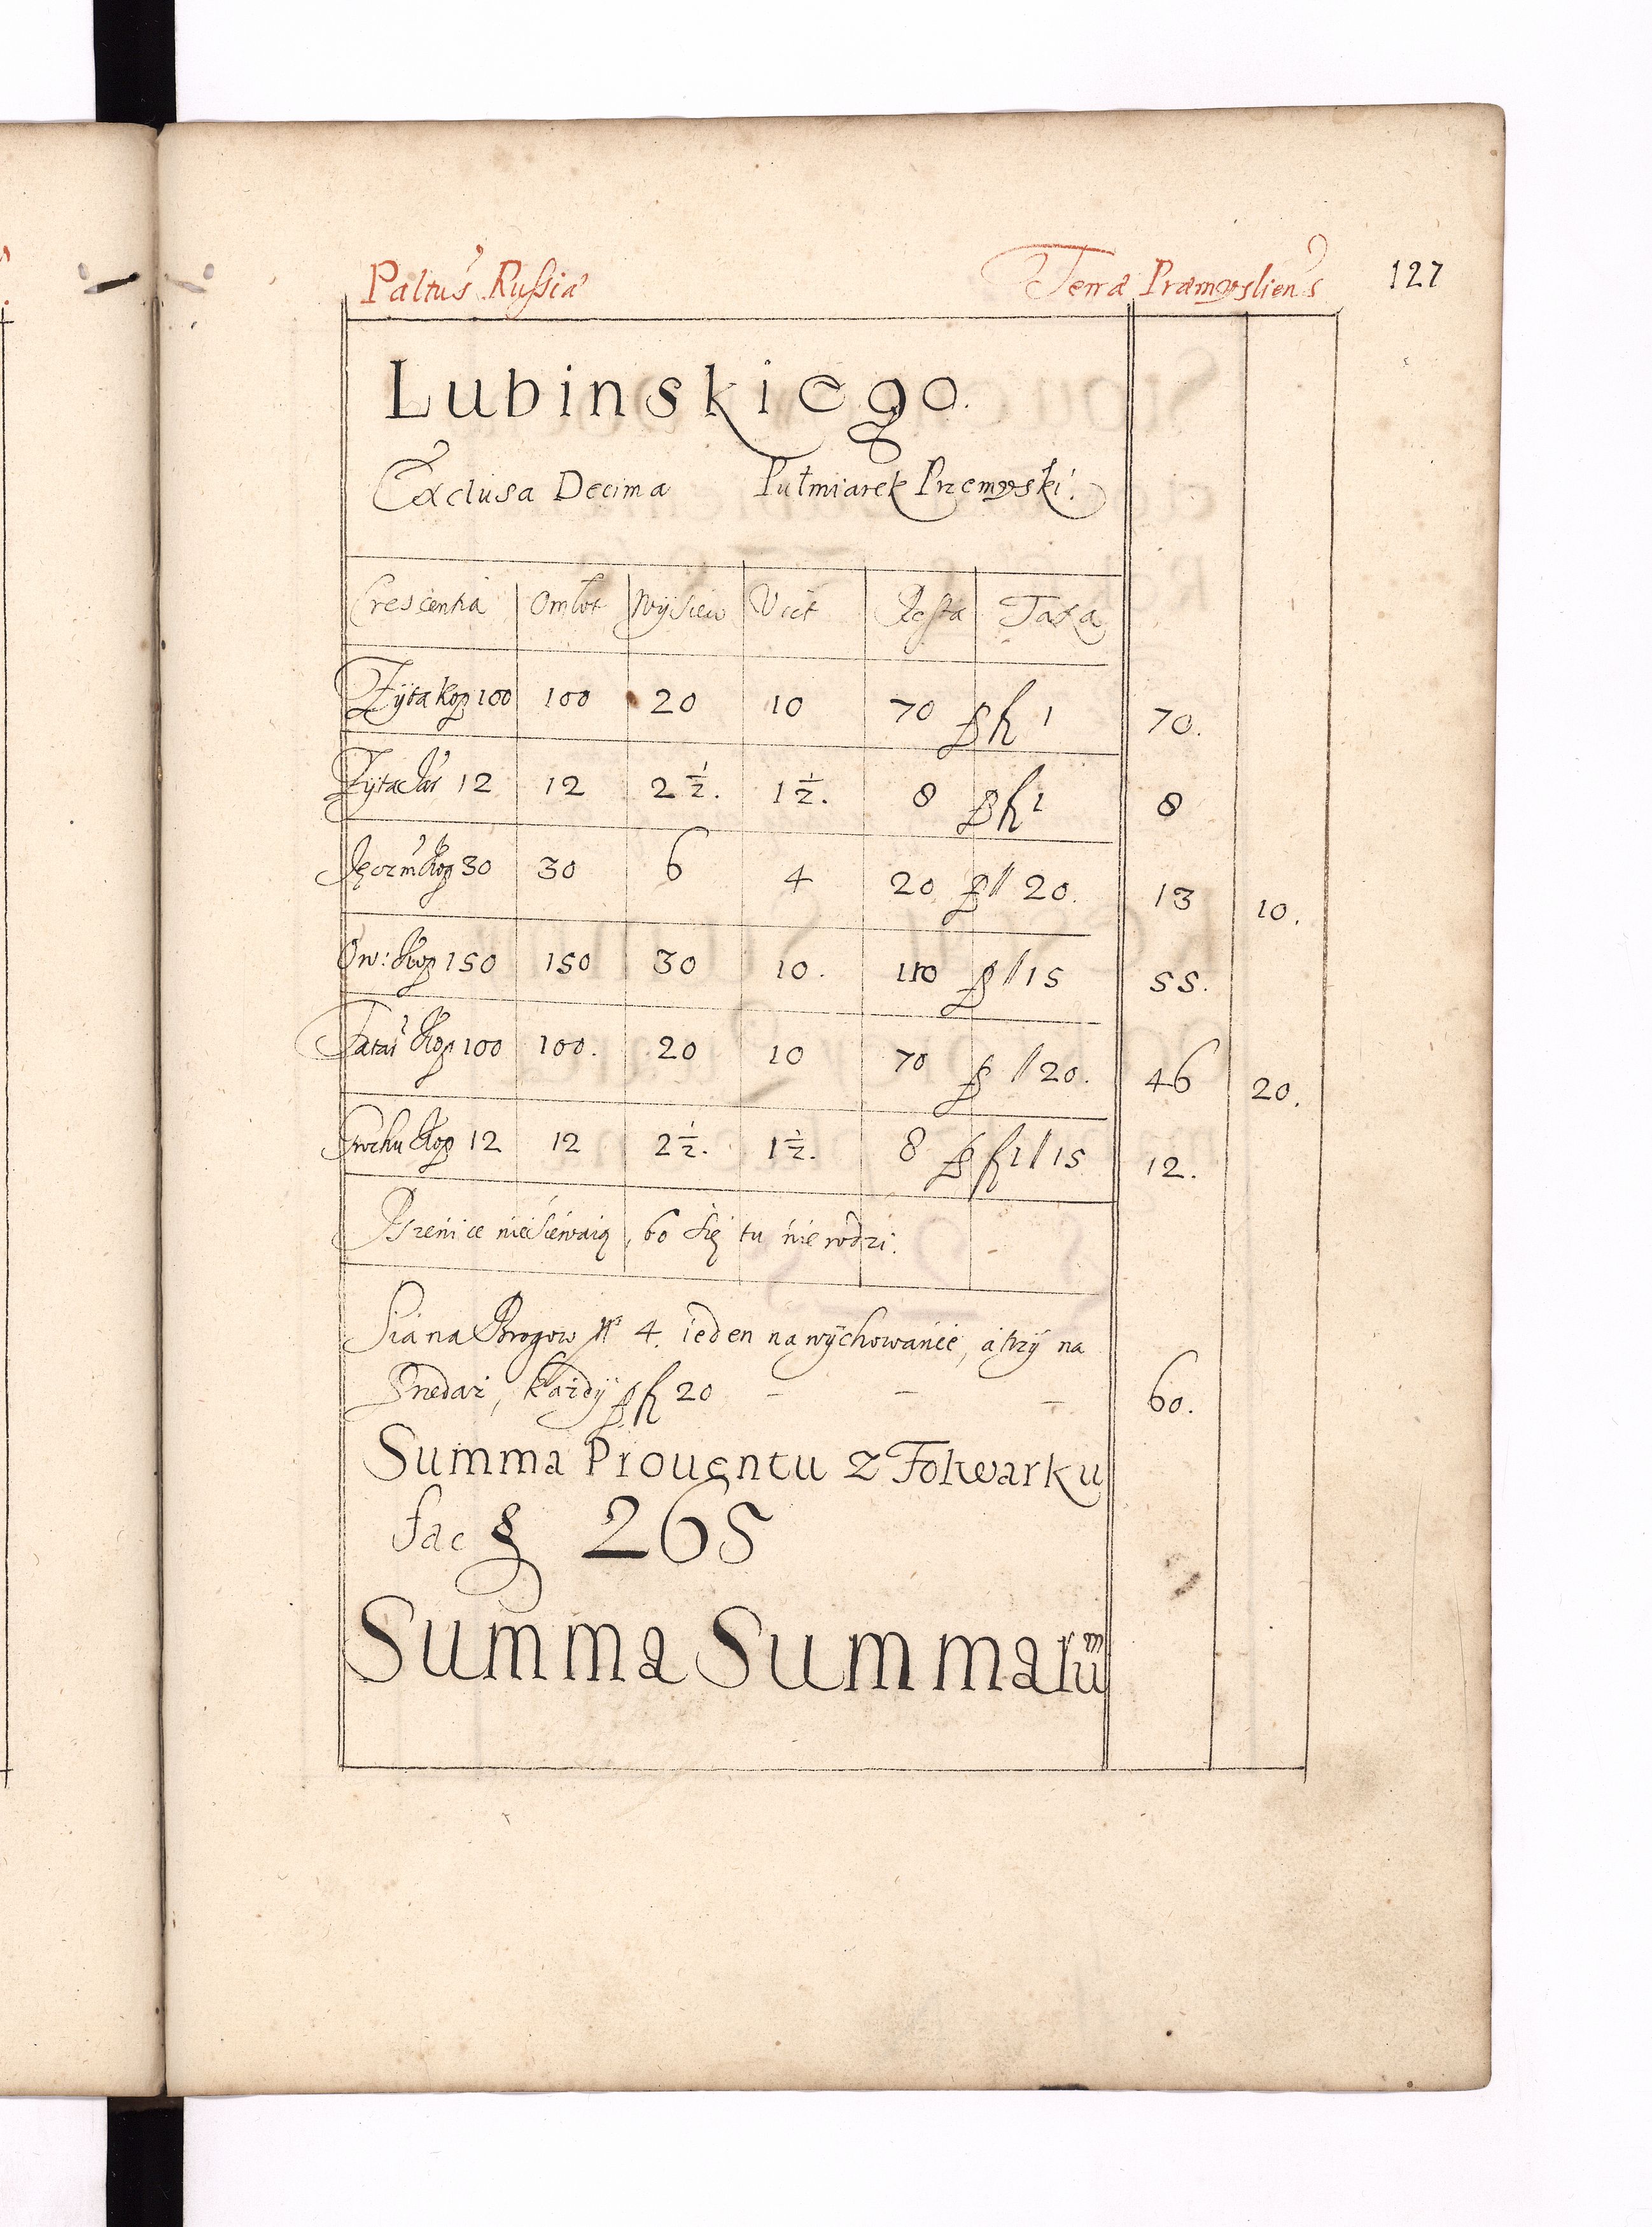 Paltus Russiæ Terræ Præmysliens 127
Lubinskiego.
Exclusa Decima Pułmiarek Przemyski.
Crescentia Omłot Wysiew Vict Resta Taxa
Zyta kop 100 100 20 10 70 p fl 1 70.
Zyta Jar 12 12 2 1/2. 1 1/2. 8 p fl 1 8
Jęczm kop 30 30 6 4 20 p // 20. 13 10.
Ow: kop 150 150 30 10. 110 p // 15 55.
Tatar kop 100 100. 20 10 70 p // 20. 46 20.
Grochu kop 12 12 2 1/2. 1 1/2. 8 p fl 1 // 15 12.
Pszenice nie siewaią, bo się tu nie rodzi.
Siana Brogow No 4. ieden na wychowanie, a trzy na
Przedaż, każdy p fl 20 - - - 60.
Summa Prouentu z Folwarku
fac 265
Summa Summarum